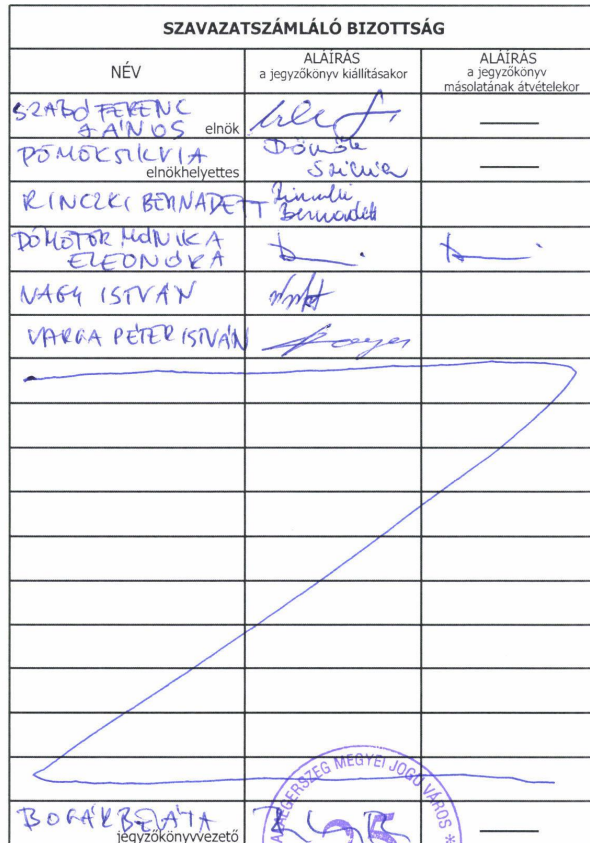 SZAVAZATSZÁMLÁLÓ BIZOTTSÁG
NÉV
ALÁÍRÁS
a jegyzőkönyv kiállításakor
ALÁÍRÁS
a jegyzőkönyv
másolatának átvételekor
SZABÓ FERENC
JÁNOS elnök
DÖMÖK SZILVIA
elnökhelyettes
Dömök
Szilvia
RINCZKI BERNADETT
Rinczki
Bernadett
DÖMÖTÖR MÓNIKA
ELEONÓRA
NAGY ISTVÁN
VARGA PÉTER ISTVÁN
BOGÁR BEÁTA
jegyzőkönyvvezető
ZALAEGERSZEG MEGYEI JOGÚ VÁROS *
25